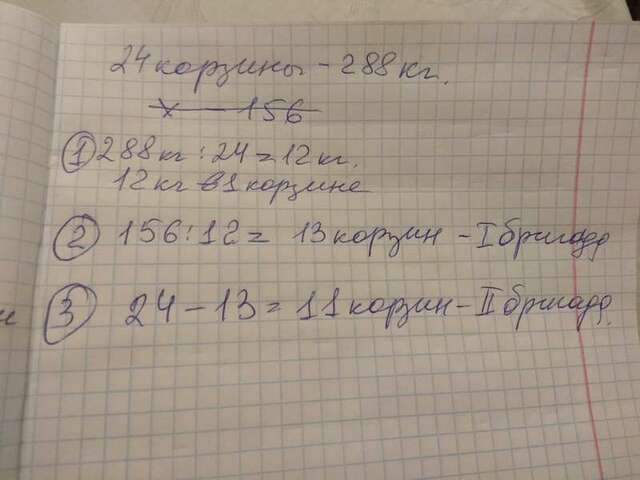 24 корзины - 288 кг.
х - 156
① 288 кг : 24 = 12 кг.
12 кг в 1 корзине
② 156 : 12 = 13 корзин - I бригада
③ 24 - 13 = 11 корзин - II бригада